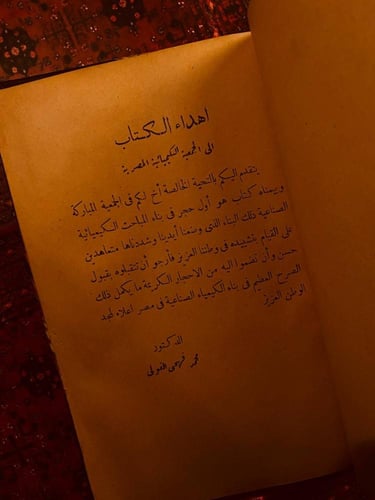 اهداء الكتاب
الى الجمعية الكيميائية المصرية
يتقدم اليكم بالتحية الخالصة أخ لكم فى الجمعية المباركة
وبيمناه كتاب هو أول حجر فى بناء المباحث الكيميائية
الصناعية ذلك البناء الذى وضعنا أيدينا وشددناها متعاهدين
على القيام بتشييده فى وطننا العزيز فأرجو أن تتقبلوه بقبول
حسن وأن تضموا اليه من الاحجار الكريمة ما يكمل ذلك
الصرح العظيم فى بناء الكيمياء الصناعية فى مصر اعلاء لمجد
الوطن العزيز
الدكتور
محمد فهمى